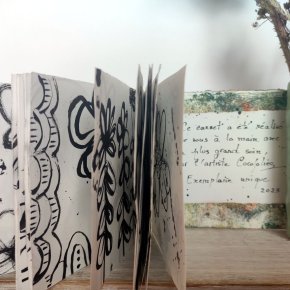 Ce carnet a été réalisé
à la main avec
plus grand soin
l'artiste
Exemplaire unique.
2023